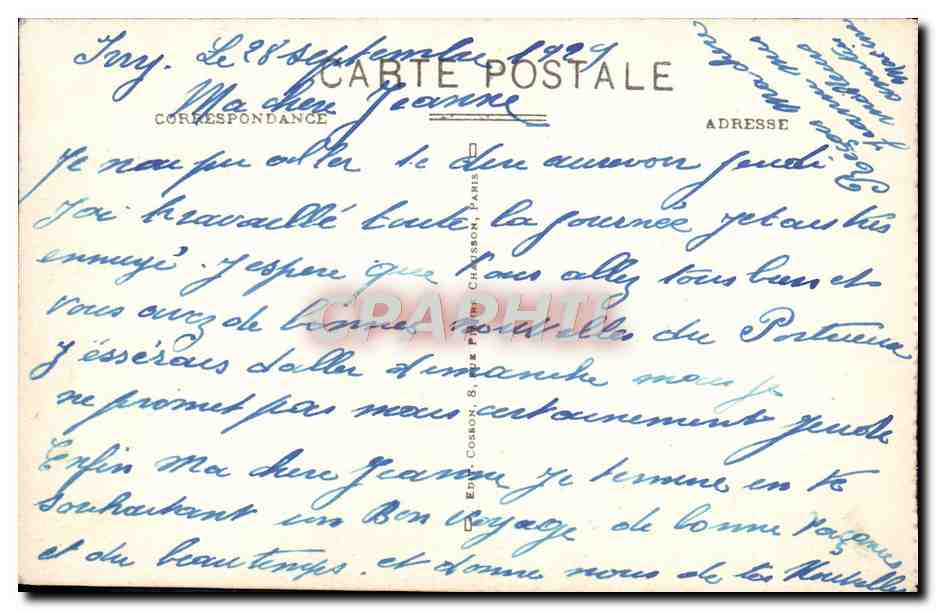 Ivry. Le 28 septembre 1929
CARTE POSTALE
Ma chere Jeanne
CORRESPONDANCE
ADRESSE
Je nai pu aller te dire aurevoir Jeudi
J'ai travaillé toute la journée J'etais très
ennuyé. J'espere que vous allez tous bien et
vous avez de bonnes nouvelles du
J'éssérais d'aller dimanche mais je
ne promet pas mais certainement Jeudi
Enfin Ma chere Jeanne Je termine en te
souhaitant un Bon voyage de bonne
et du beau temps. et donne nous de tes Nouvelles
EDIT. COSSON, 8, RUE PIERRE CHAUSSON, PARIS
CPAPHIL